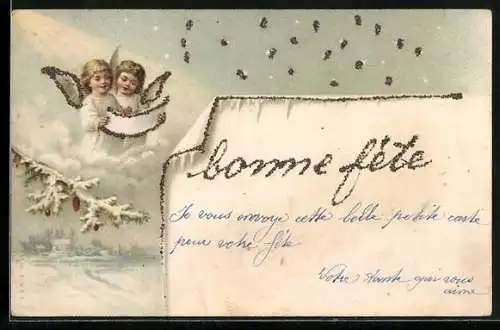 bonne fête
Je vous envoye cette belle petite carte
pour votre fête
Votre tante qui vous
aime